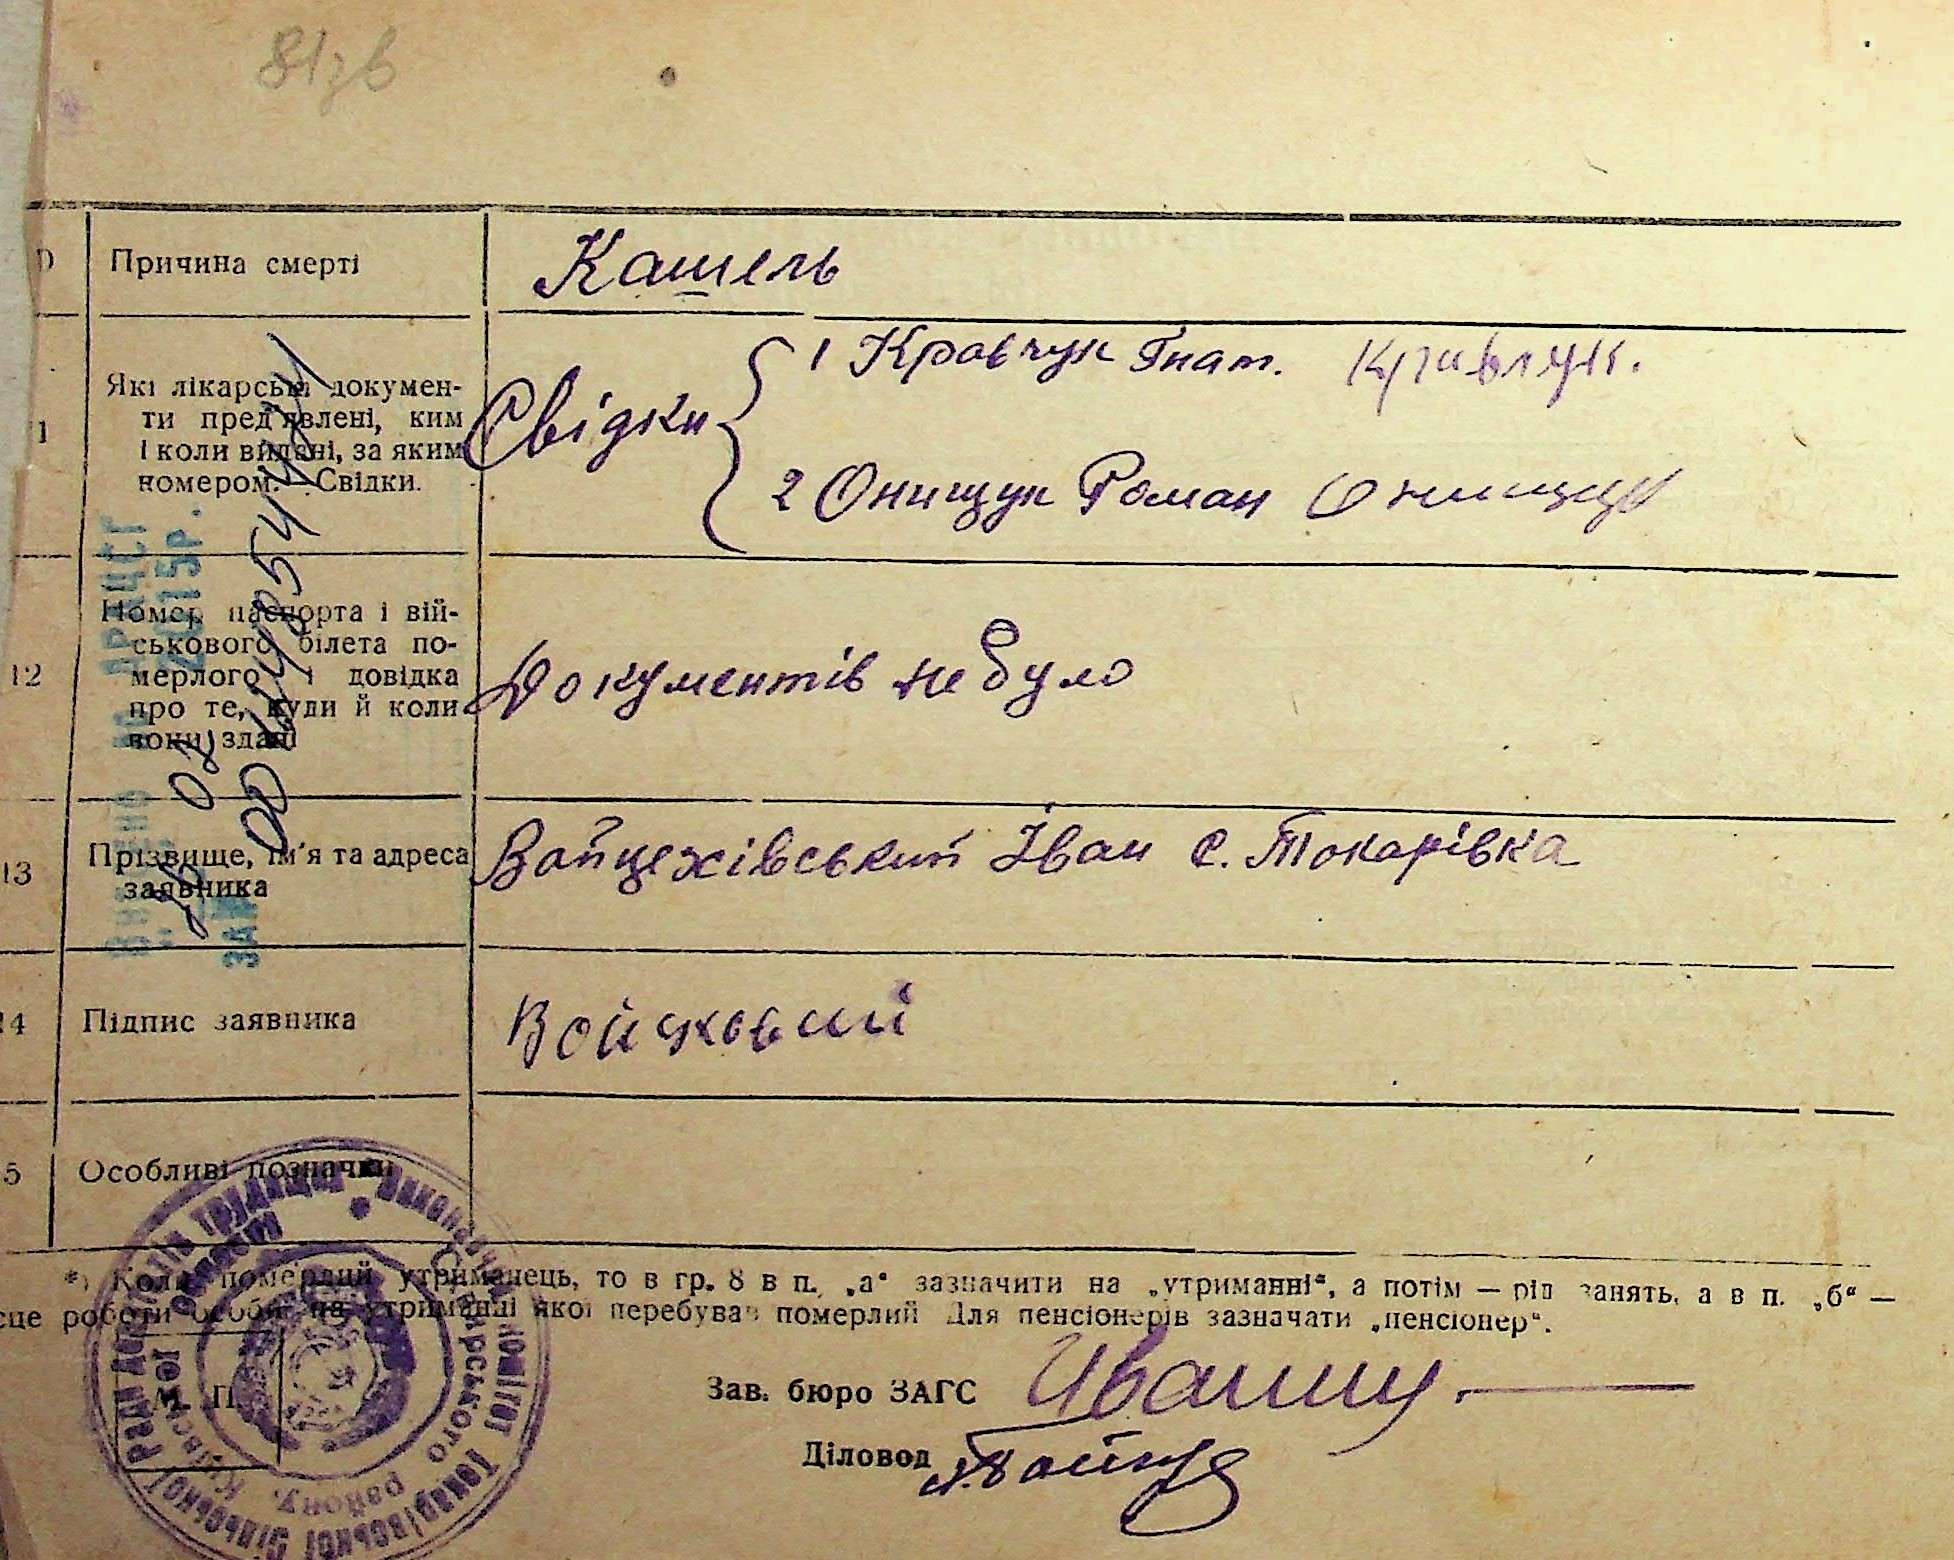 81зв
Причина смерті
Кашель
11
Які лікарські докумен-
ти пред'явлені, ким
і коли видані, за яким
номером. Свідки.
Свідки
1 Кравчук Гнат. Кравчук.
2 Онищук Роман Онищук
12
Номер паспорта і вій-
ськового білета по-
мерлого і довідка
про те, куди й коли
вони здані
Документів не було
13
Прізвище, ім'я та адреса
заявника
Войцехівський Іван с. Токарівка
14
Підпис заявника
5
Особливі позначки
*) Коли померлий утриманець, то в гр. 8 в п. „а“ зазначити на „утриманні“, а потім — рід занять, а в п. „б“ —
сце роботи особи, на утриманні якої перебував померлий Для пенсіонерів зазначати „пенсіонер“.
М. П.
Зав. бюро ЗАГС
Діловод
ДРАЦСГ
2015р.
Виконавчий комітет Токарівської сільської ради депутатів трудящих
району, Київської області